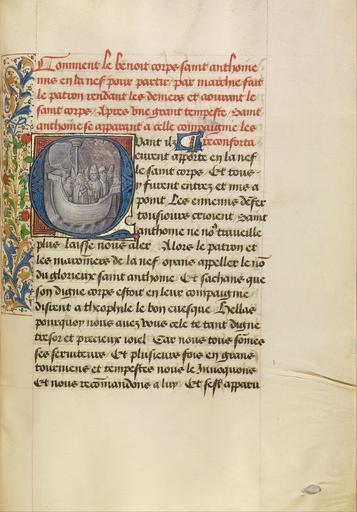 Comment le benoit corps saint anthoine
mis en la nef pour partir par marchie fait
le patron rendant les deniers et aourant le
saint corps. Apres vne grant tempeste. Saint
anthoine se apparant a celle compaignie les
Quant ilz reconforta
eurent apporte en la nef
le saint corps. Et tous
y furent entrez et mis a
point. Les ennemis denfer
tousiours crioient. Saint
anthoine ne no9 trauueille
plus. laisse nous aler. Alors le patron et
les maronniers de la nef oyans appeller le no
du glorieux saint anthoine. Et sachans que
son digne corps estoit en leur compaignie
distrent a theophile le bon euesque. Hellas
pourquoy nous auez vous cele ce tant digne
tresor et precieux ioiel. Car nous tous somes
ses seruiteurs. Et plusieurs fois en grans
tourmens et tempestes nous le Inuoquons
Et nous recomandons a luy. Et sest apparu